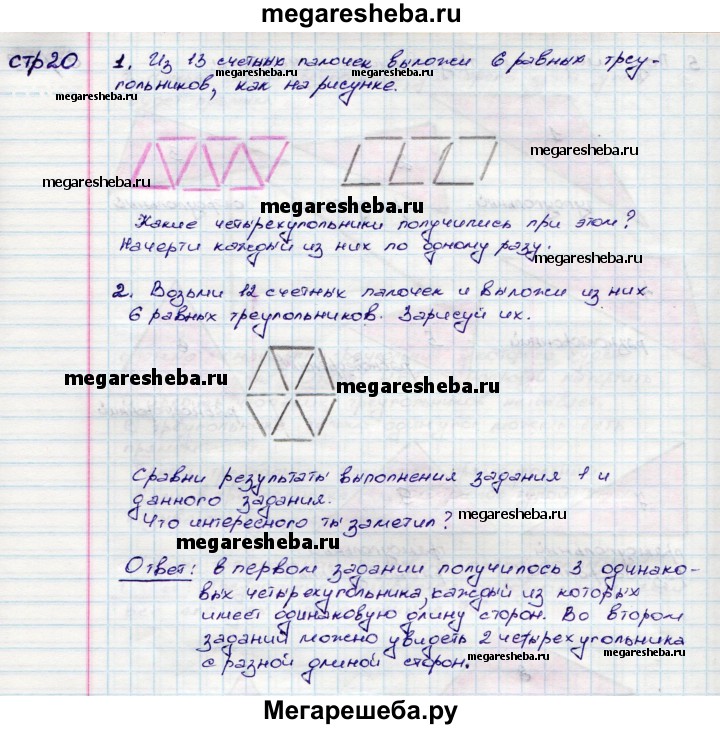 megaresheba.ru
стр20
1. Из 13 счетных палочек выложи 6 равных треу-
megaresheba.ru
megaresheba.ru
гольников, как на рисунке.
megaresheba.ru
megaresheba.ru
megaresheba.ru
Какие четырехугольники получились при этом?
Начерти каждый из них по одному разу.
megaresheba.ru
2. Возьми 12 счетных палочек и выложи из них
6 равных треугольников. Зарисуй их.
megaresheba.ru
megaresheba.ru
megaresheba.ru
Сравни результаты выполнения задания 1 и
данного задания.
megaresheba.ru
Что интересного ты заметил?
megaresheba.ru
megaresheba.ru
Ответ: в первом задании получилось 3 одинако-
вых четырехугольника, каждый из которых
имеет одинаковую длину сторон. Во втором
задании можно увидеть 2 четырехугольника
с разной длиной сторон.
megaresheba.ru
megaresheba.ru
Мегарешеба.ру